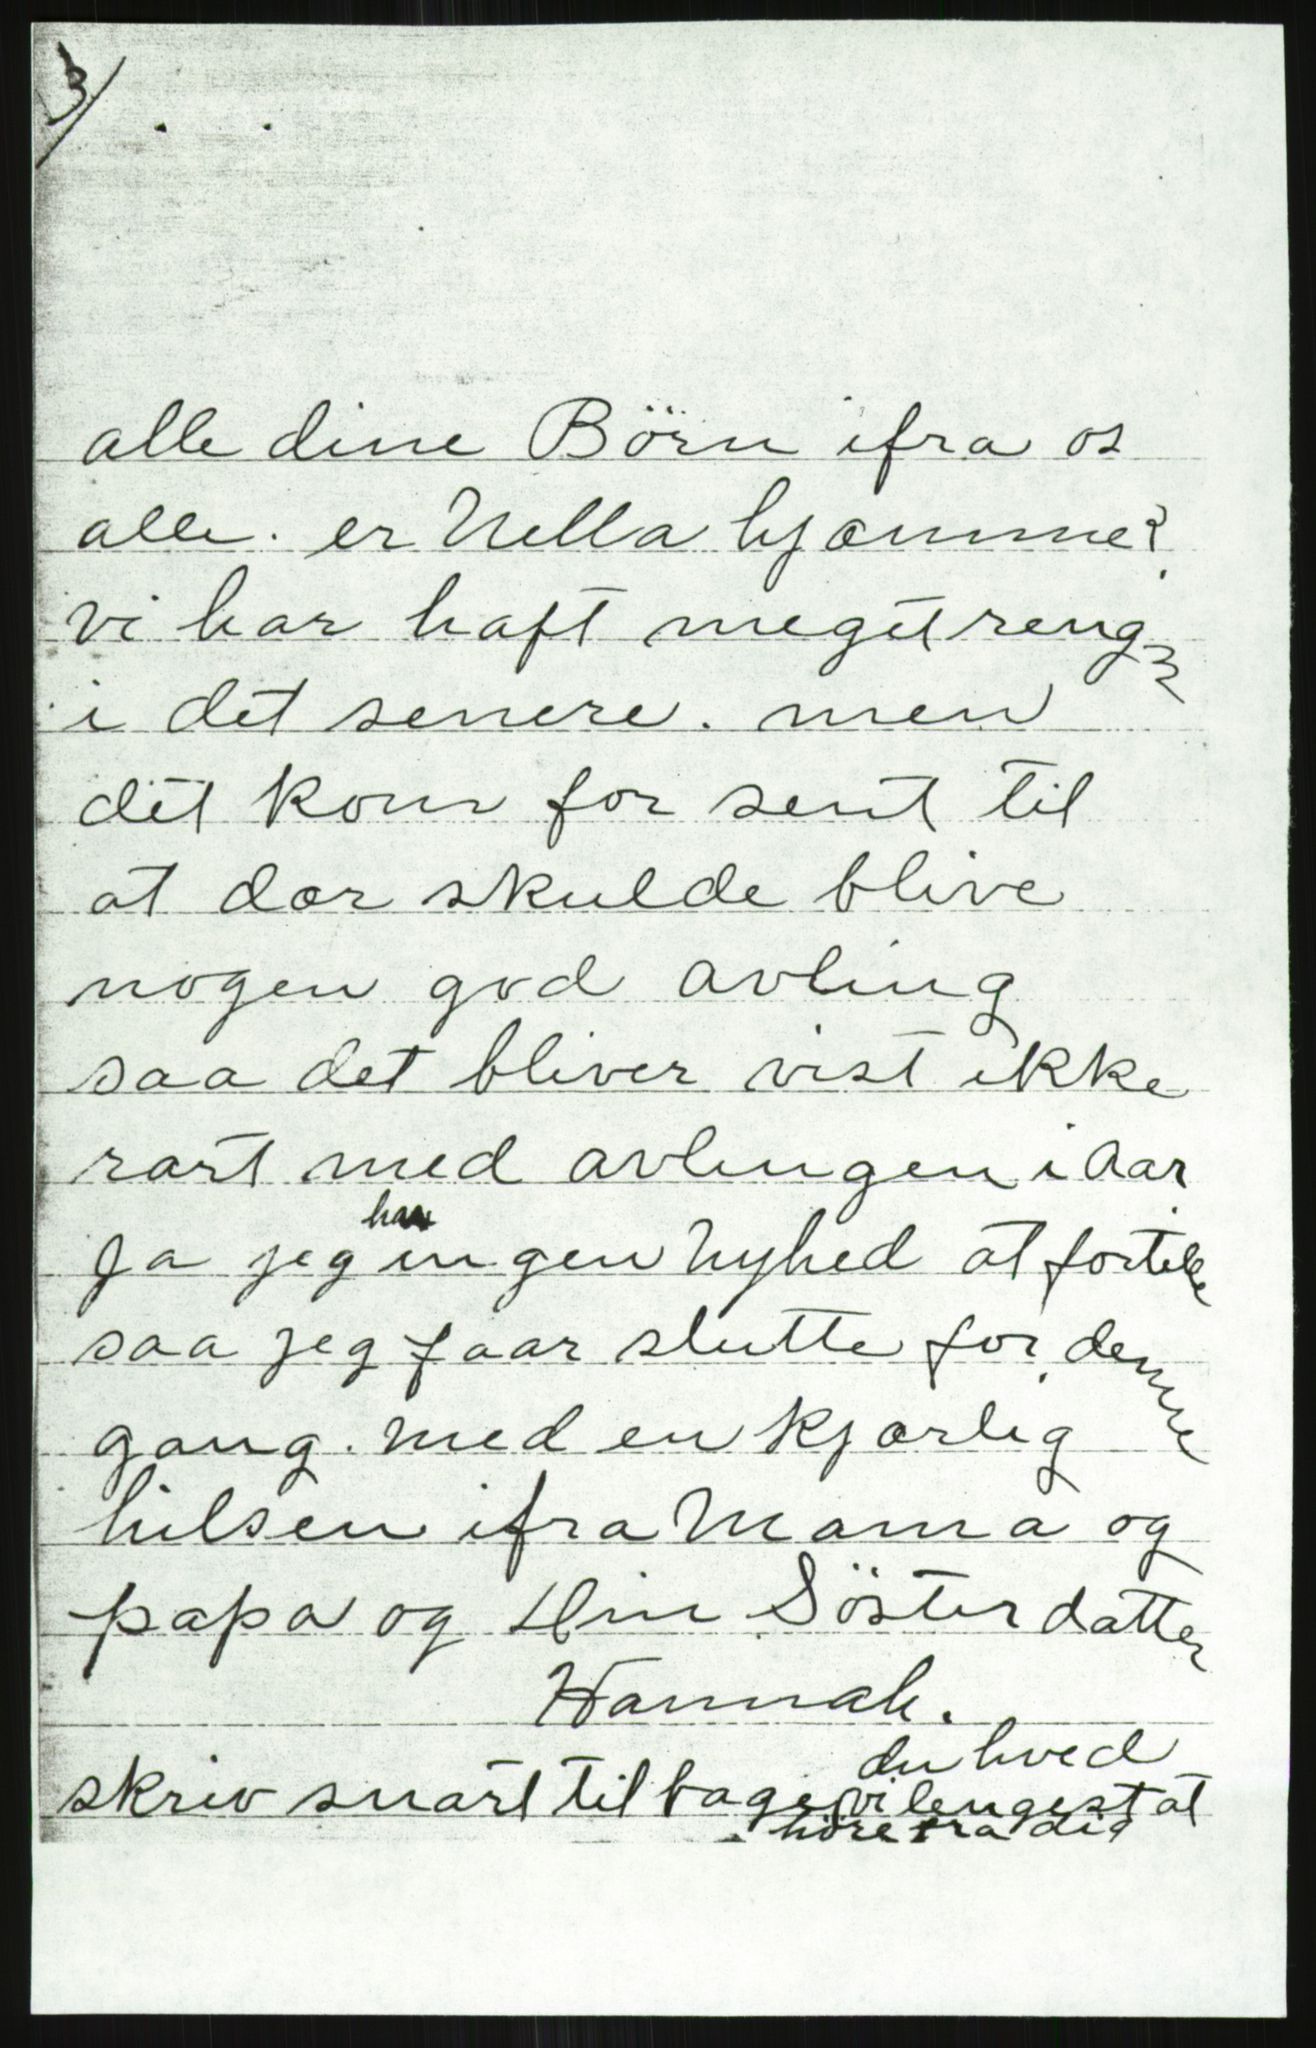 3/
alle dine Börn ifra os
alle. er Nella hjamme?
vi har haft meget reng
i det senere. men
det kom for sent til
at dær skulde blive
nogen god avling
saa det bliver vist ikke
rart med avlingen i Aar
Ja jeg har ingen Nyhed at fortelle
saa jeg faar slutte for denne
gang. med en kjærlig
hilsen ifra Mama og
papa og Din Sösterdatter
Hannah.
skriv snart tilbage du hved
vi lenges at
höre fra dig